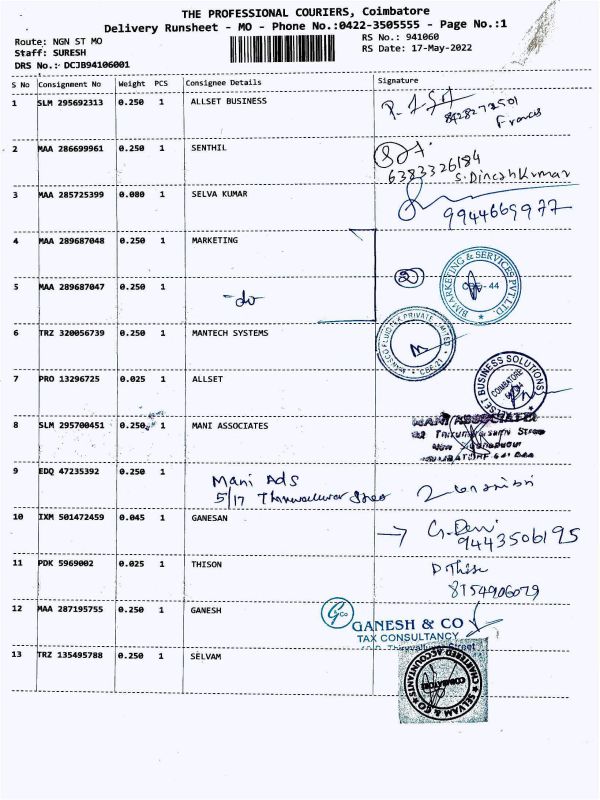 THE PROFESSIONAL COURIERS, Coimbatore
Delivery Runsheet - MO - Phone No.:0422-3505555 - Page No.:1
Route: NGN ST MO
RS No.: 941060
Staff: SURESH
RS Date: 17-May-2022
DRS No.: DCJB94106001
S No Consignment No Weight PCS Consignee Details Signature
1 SLM 295692313 0.250 1 ALLSET BUSINESS
8428272501
Francis
2 MAA 286699961 0.250 1 SENTHIL
6383326184
S. Dinesh Kumar
3 MAA 285725399 0.080 1 SELVA KUMAR
9944669977
4 MAA 289687048 0.250 1 MARKETING
BIMARKETING & SERVICES PVT LTD
5 MAA 289687047 0.250 1
-do
2
44
6 TRZ 320056739 0.250 1 MANTECH SYSTEMS
PRIVATE LIMITED
CBE-21
7 PRO 13296725 0.025 1 ALLSET
ALLSET BUSINESS SOLUTIONS
COIMBATORE
8 SLM 295700451 0.250 1 MANI ASSOCIATES
MANI ASSOCIATES
9 EDQ 47235392 0.250 1
Mani Ads
5/17 Thiruvalluvar Street
10 IXM 501472459 0.045 1 GANESAN
G. Devi
9443506195
11 PDK 5969002 0.025 1 THISON
8754906029
12 MAA 287195755 0.250 1 GANESH
G Co
GANESH & CO
TAX CONSULTANCY
Thiruvalluvar Street
13 TRZ 135495788 0.250 1 SELVAM
SELVAM & CO
CHARTERED ACCOUNTANTS
COIMBATORE